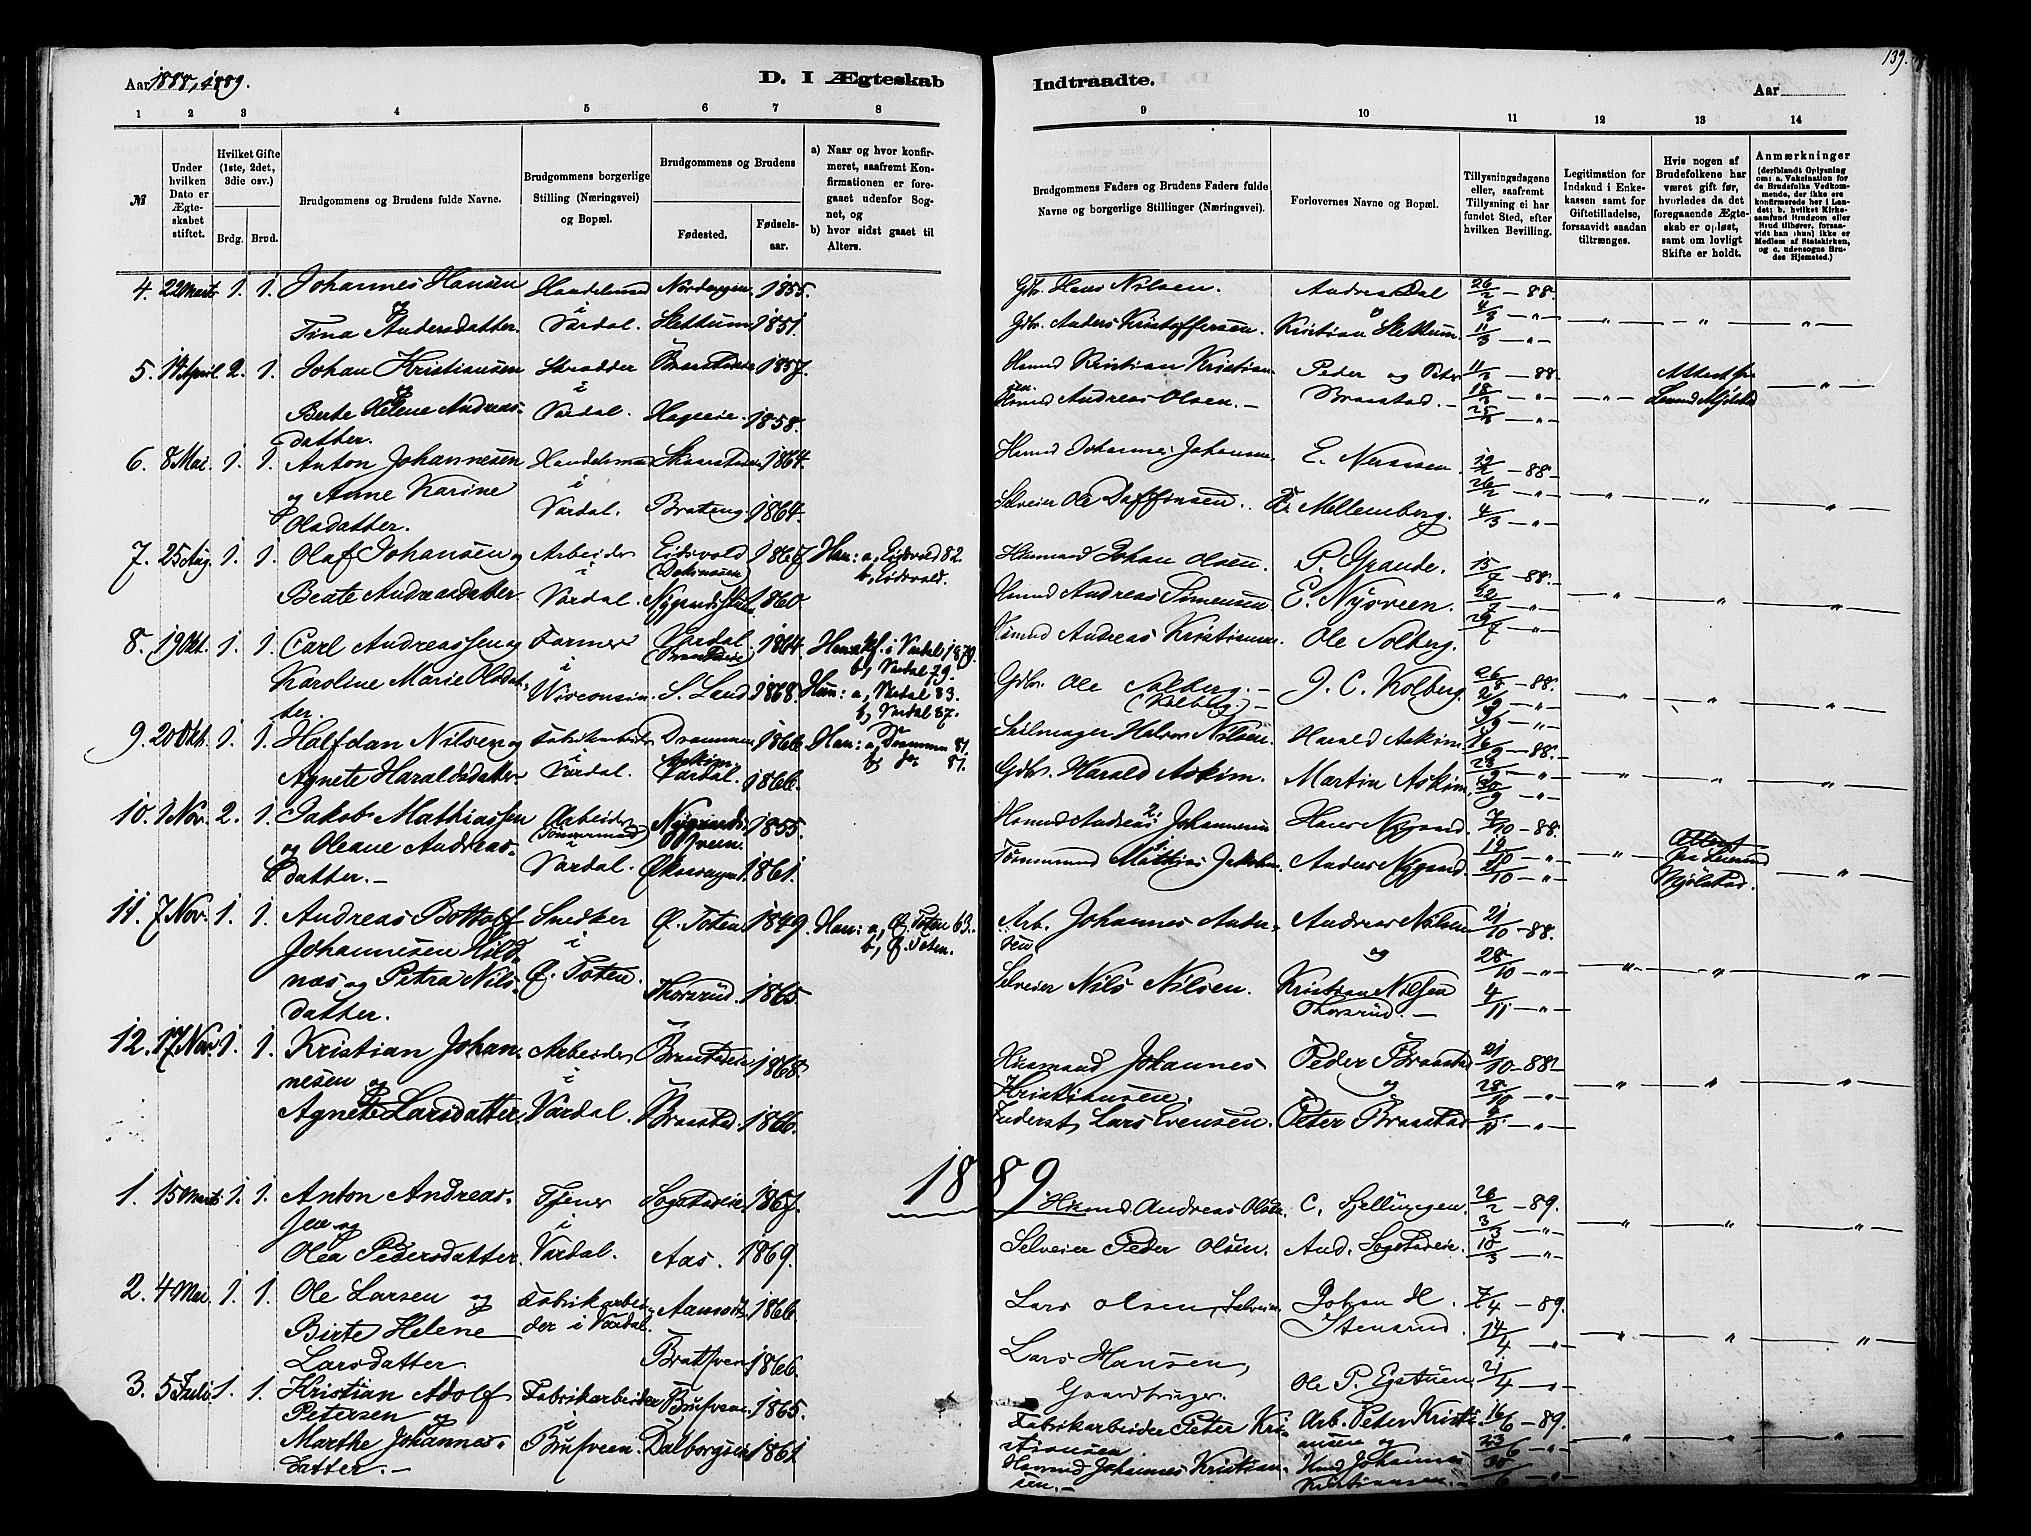 139.
Aar 1888, 1889.
D. I Ægteskab
Indtraadte.
Aar
1 2 3 4 5 6 7 8
9 10 11 12 13 14
№
Under hvilken Dato er Ægteskabet stiftet.
Hvilket Gifte (1ste, 2det, 3die osv.)
Brdg. Brud.
Brudgommens og Brudens fulde Navne.
Brudgommens borgerlige Stilling (Næringsvei) og Bopæl.
Brudgommens og Brudens
Fødested.
Fødselsaar.
a) Naar og hvor konfirmeret, saafremt Konfirmationen er foregaaet udenfor Sognet, og
b) hvor sidst gaaet til Alters.
Brudgommens Faders og Brudens Faders fulde Navne og borgerlige Stillinger (Næringsvei).
Forlovernes Navne og Bopæl.
Tillysningsdagene eller, saafremt Tillysning ei har fundet Sted, efter hvilken Bevilling.
Legitimation for Indskud i Enkekassen samt for Giftetilladelse, forsaavidt saadan tiltrænges.
Hvis nogen af Brudefolkene har været gift før, hvorledes da det foregaaende Ægteskab er opløst, samt om lovligt Skifte er holdt.
Anmærkninger (deriblandt Oplysning om: a. Vakcination for de Brudefolks Vedkommende, der ikke ere konfirmerede her i Landet; b. hvilket Kirkesamfund Brudgom eller Brud tilhører, forsaavidt han (hun) ikke er Medlem af Statskirken, og c. udensogns Brudes Hjemsted.)
4. 22 Marts 1. 1. Johannes Hansen Handelsmd Nordengen 1855. Gdbr. Hans Nilsen. Andreas Dal 26/2 - 88.
og i 4/3 - " -
Tina Andersdatter. Vardal. Slettum 1851. Gdbr. Anders Kristoffersen. Kristian Slettum 11/3 - " - " " "
5. 14 April 2. 1. Johan Kristiansen Skrædder Braastadeie 1857. Husmd Kristian Kristiansen Peder og Peter 11/3 - 88. Attest fra
og i 18/3 - " -
Berte Helene Andreas- Vardal. Hageeie. 1858. Husmd Andreas Olsen. - Braastad. - 25/3 - " - "
datter.
6. 8 Mai. 1. 1. Anton Johannesen Handelsmd Skaarstadeie 1864. Husmd Johannes Johansen E. Nersveen. 19/2 - 88.
og Anne Karine i 26/2 - " -
Olsdatter. Vardal. Brateng. 1864. Selveier Ole Daffinsen. T. Mellemberg. 4/3 - " - " " "
7. 25 Aug. 1. 1. Olaf Johansen og Arbeider Eidsvold 1867 Han: a, Eidsvold 82. Husmand Johan Olsen. P. Grande. 15/7 - 88.
i b, Eidsvold.
Beate Andreasdatter Vardal. 1860. Husmd Andreas Simensen E. Nysveen. 22/7 - " - " " "
8. 19 Okt. 1. 1. Carl Andreassen og Farmer Vardal 1864 Han: kf. i Vardal 1879. Husmd Andreas Kristiansen Ole Solberg. 29/7
(Braastadeie) b, Vardal 79.
Karoline Marie Olsdat- i Wisconsin. S. Land 1868. Hun: a, Vardal 83. Gdbr. Ole Solberg. - J. C. Kolberg. 26/8 - 88.
ter. b, Vardal 87. (Kolberg) - 2/9 - " - " " "
9. 20 Okt. 1. 1. Halfdan Nilsen og Fabrikarbeider Drammen 1866. Han: a, Drammen 81. Seilmager Halvor Nilsen. Harald Askim 16/9 - 88.
i Askim b, do 87.
Agnete Haraldsdatter Vardal. Vardal. 1866. Gdbr. Harald Askim. Martin Askim 23/9 - " -
30/9 - " -
10. 1 Nov. 2. 1. Jakob Mathiassen Arbeider Nygaards- 1855. Husmd Andreas 2: Johannesen Hans Nygaard 7/10 - 88. Attest
og Oleane Andreas- (Tømmermand) i
datter. - Vardal. 1861. Tømmermand Mathias Jakobsen. Anders Nygaard. 21/10 - " - " Mjølstad. "
11. 7 Nov. 1. 1. Andreas Bottolf Snedker Ø. Toten 1849. Han: a, Ø. Toten 63. Arb. Johannes Ander- Andreas Nilsen 21/10 - 88.
Johannesen Hild- i b, Ø. Toten. sen og 28/10 - " -
næs og Petra Nils- Ø. Toten. Thorsrud. 1865. Selveier Nils Nilsen. Kristian Nilsen 4/11 - " - " " "
datter. Thorsrud. -
12. 17 Nov. 1. 1. Kristian Johan- Arbeider Braastadeie 1868. Husmand Johannes Peder Braastad 21/10 - 88.
nesen og i Kristiansen. og 28/10 - " - " " "
Agnete Larsdatter. Vardal. Braastad. 1866. Inderst, Lars Evensen. Peter Braastad 4/11 - " -
1889
1. 15 Marts 1. 1. Anton Andreas- Tjener Sogstadeie 1867. Husmd Andreas Olsen. C. Gjellumgen. 26/2 - 89.
sen og i 3/3 - " - " " "
Olea Pedersdatter. Vardal. Aas. 1869. Selveier Peder Olsen. And. Sogstadeie. 10/3 - " -
2. 4 Mai. 1. 1. Ole Larsen og Fabrikarbei- 1866. Lars Olsen, Selveier Johan H. 7/4 - 89.
Birte Helene der i Vardal. Stensrud. 14/4 - " - " " "
Larsdatter Bratsveen 1866. Lars Hansen, Ole P. Egstuen 21/4 - " -
Gaardbruger.
3. 5 Juli 1. 1. Kristian Adolf Fabrikarbeider Brufveen. 1865. Fabrikarbeider Peter Kri- Arb. Peter Kristi- 16/6 - 89.
Petersen og i stiansen. ansen og 23/6 - " - " " "
Marthe Johannes- Brufveen. Dalborgseie 1861 Husmd Johannes Kristian- Hmd. Johannes 30/6 - " -
datter. - sen. - Kristiansen. -